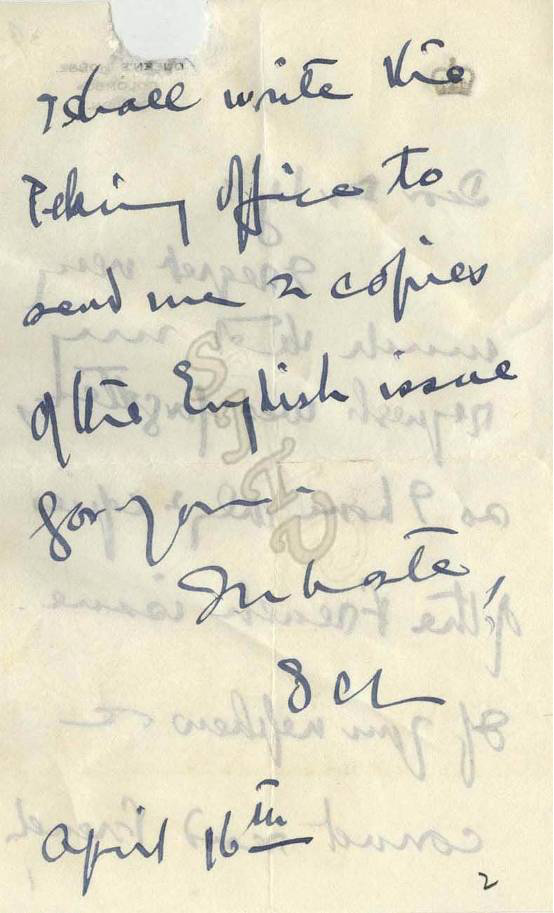 I shall write the
Peking Office to
send me 2 copies
of the English issue
for you -
In haste,
SCL
April 16th
2